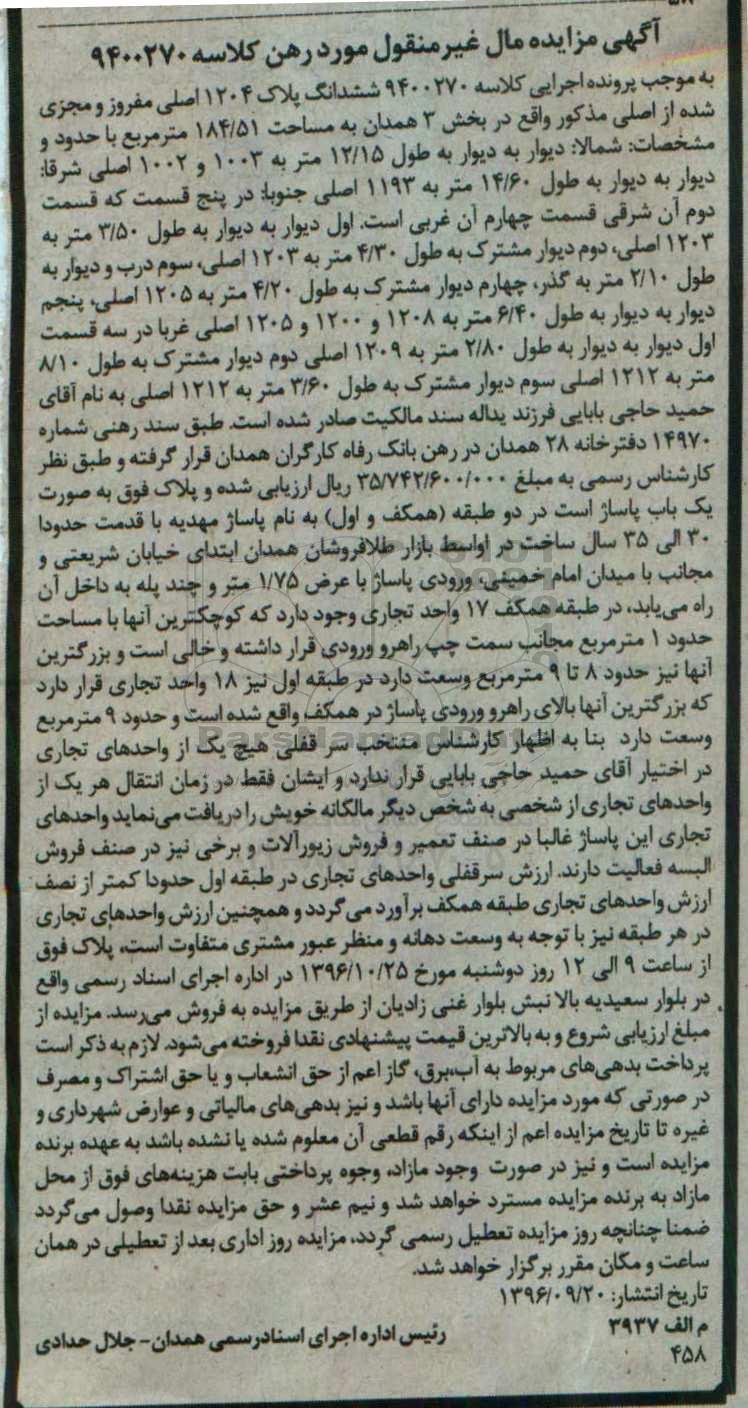 آگهی مزایده مال غیرمنقول مورد رهن کلاسه ۹۴۰۰۲۷۰
به موجب پرونده اجرایی کلاسه ۹۴۰۰۲۷۰ ششدانگ پلاک ۱۲۰۴ اصلی مفروز و مجزی
شده از اصلی مذکور واقع در بخش ۳ همدان به مساحت ۱۸۴/۵۱ مترمربع با حدود و
مشخصات: شمالا: دیوار به دیوار به طول ۱۲/۱۵ متر به ۱۰۰۳ و ۱۰۰۲ اصلی شرقا:
دیوار به دیوار به طول ۱۴/۶۰ متر به ۱۱۹۳ اصلی جنوبا: در پنج قسمت که قسمت
دوم آن شرقی قسمت چهارم آن غربی است. اول دیوار به دیوار به طول ۳/۵۰ متر به
۱۲۰۳ اصلی، دوم دیوار مشترک به طول ۴/۳۰ متر به ۱۲۰۳ اصلی، سوم درب و دیوار به
طول ۲/۱۰ متر به گذر، چهارم دیوار مشترک به طول ۴/۲۰ متر به ۱۲۰۵ اصلی، پنجم
دیوار به دیوار به طول ۶/۴۰ متر به ۱۲۰۸ و ۱۲۰۰ و ۱۲۰۵ اصلی غربا در سه قسمت
اول دیوار به دیوار به طول ۲/۸۰ متر به ۱۲۰۹ اصلی دوم دیوار مشترک به طول ۸/۱۰
متر به ۱۲۱۲ اصلی سوم دیوار مشترک به طول ۳/۶۰ متر به ۱۲۱۲ اصلی به نام آقای
حمید حاجی بابایی فرزند یداله سند مالکیت صادر شده است. طبق سند رهنی شماره
۱۴۹۷۰ دفترخانه ۲۸ همدان در رهن بانک رفاه کارگران همدان قرار گرفته و طبق نظر
کارشناس رسمی به مبلغ ۳۵/۷۴۲/۶۰۰/۰۰۰ ریال ارزیابی شده و پلاک فوق به صورت
یک باب پاساژ است در دو طبقه (همکف و اول) به نام پاساژ مهدیه با قدمت حدودا
۳۰ الی ۳۵ سال ساخت در اواسط بازار طلافروشان همدان ابتدای خیابان شریعتی و
مجانب با میدان امام خمینی، ورودی پاساژ با عرض ۱/۷۵ متر و چند پله به داخل آن
راه می‌یابد، در طبقه همکف ۱۷ واحد تجاری وجود دارد که کوچکترین آنها با مساحت
حدود ۱ مترمربع مجانب سمت چپ راهرو ورودی قرار داشته و خالی است و بزرگترین
آنها نیز حدود ۸ تا ۹ مترمربع وسعت دارد در طبقه اول نیز ۱۸ واحد تجاری قرار دارد
که بزرگترین آنها بالای راهرو ورودی پاساژ در همکف واقع شده است و حدود ۹ مترمربع
وسعت دارد بنا به اظهار کارشناس منتخب سر قفلی هیچ یک از واحدهای تجاری
در اختیار آقای حمید حاجی بابایی قرار ندارد و ایشان فقط در زمان انتقال هر یک از
واحدهای تجاری از شخصی به شخص دیگر مالکانه خویش را دریافت می‌نماید واحدهای
تجاری این پاساژ غالبا در صنف تعمیر و فروش زیورآلات و برخی نیز در صنف فروش
البسه فعالیت دارند. ارزش سرقفلی واحدهای تجاری در طبقه اول حدودا کمتر از نصف
ارزش واحدهای تجاری طبقه همکف برآورد می‌گردد و همچنین ارزش واحدهای تجاری
در هر طبقه نیز با توجه به وسعت دهانه و منظر عبور مشتری متفاوت است، پلاک فوق
از ساعت ۹ الی ۱۲ روز دوشنبه مورخ ۱۳۹۶/۱۰/۲۵ در اداره اجرای اسناد رسمی واقع
در بلوار سعیدیه بالا نبش بلوار غنی زادیان از طریق مزایده به فروش می‌رسد. مزایده از
مبلغ ارزیابی شروع و به بالاترین قیمت پیشنهادی نقدا فروخته می‌شود. لازم به ذکر است
پرداخت بدهی‌های مربوط به آب،برق، گاز اعم از حق انشعاب و یا حق اشتراک و مصرف
در صورتی که مورد مزایده دارای آنها باشد و نیز بدهی‌های مالیاتی و عوارض شهرداری و
غیره تا تاریخ مزایده اعم از اینکه رقم قطعی آن معلوم شده یا نشده باشد به عهده برنده
مزایده است و نیز در صورت وجود مازاد، وجوه پرداختی بابت هزینه‌های فوق از محل
مازاد به برنده مزایده مسترد خواهد شد و نیم عشر و حق مزایده نقدا وصول می‌گردد
ضمنا چنانچه روز مزایده تعطیل رسمی گردد، مزایده روز اداری بعد از تعطیلی در همان
ساعت و مکان مقرر برگزار خواهد شد.
تاریخ انتشار: ۱۳۹۶/۰۹/۲۰
م الف ۳۹۳۷
رئیس اداره اجرای اسنادرسمی همدان- جلال حدادی
۴۵۸